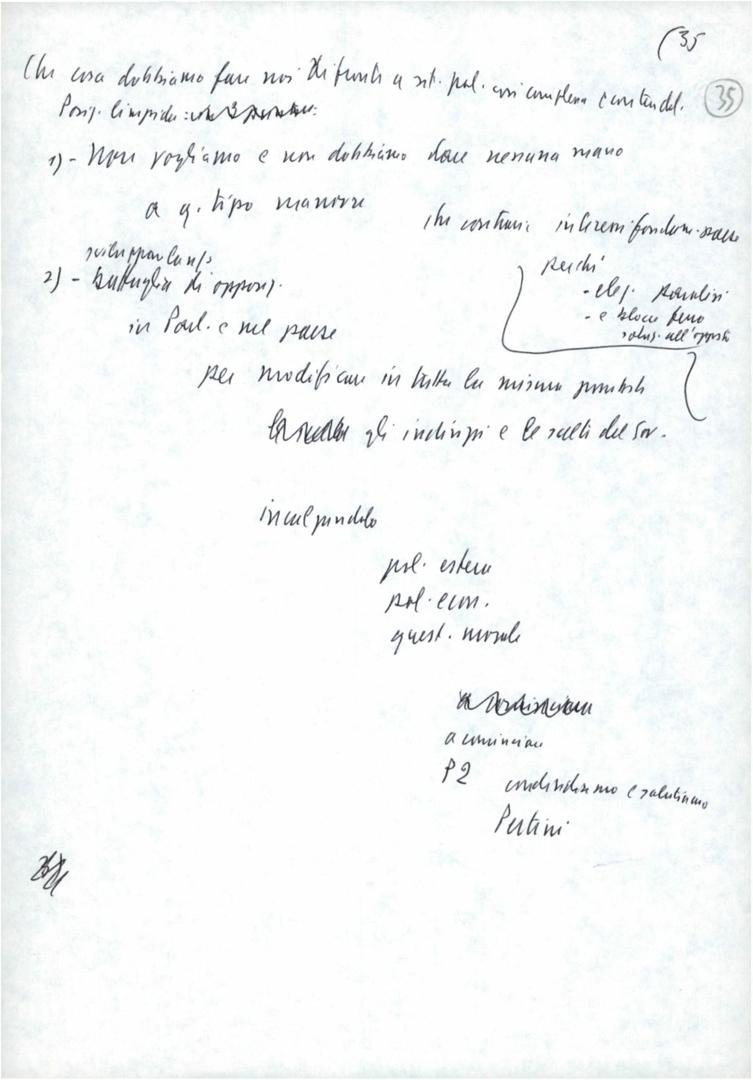 35
35
Che cosa dobbiamo fare noi di fronte a sit. pol. così complessa e
Posiz. limpida:
1) - Non vogliamo e non dobbiamo dare nessuna mano
a q. tipo manovre
che interessi fondam. paese
perché
- elez.
- e blocco
sviluppando
2) - battaglia di opposiz.
in Parl. e nel paese
per modificare in tutta la misura possibile
gli indirizzi e le scelte del Gov.
incalzandolo
pol. estera
pol. econ.
quest. morale
a cominciare
P2 condividiamo e salutiamo
Pertini